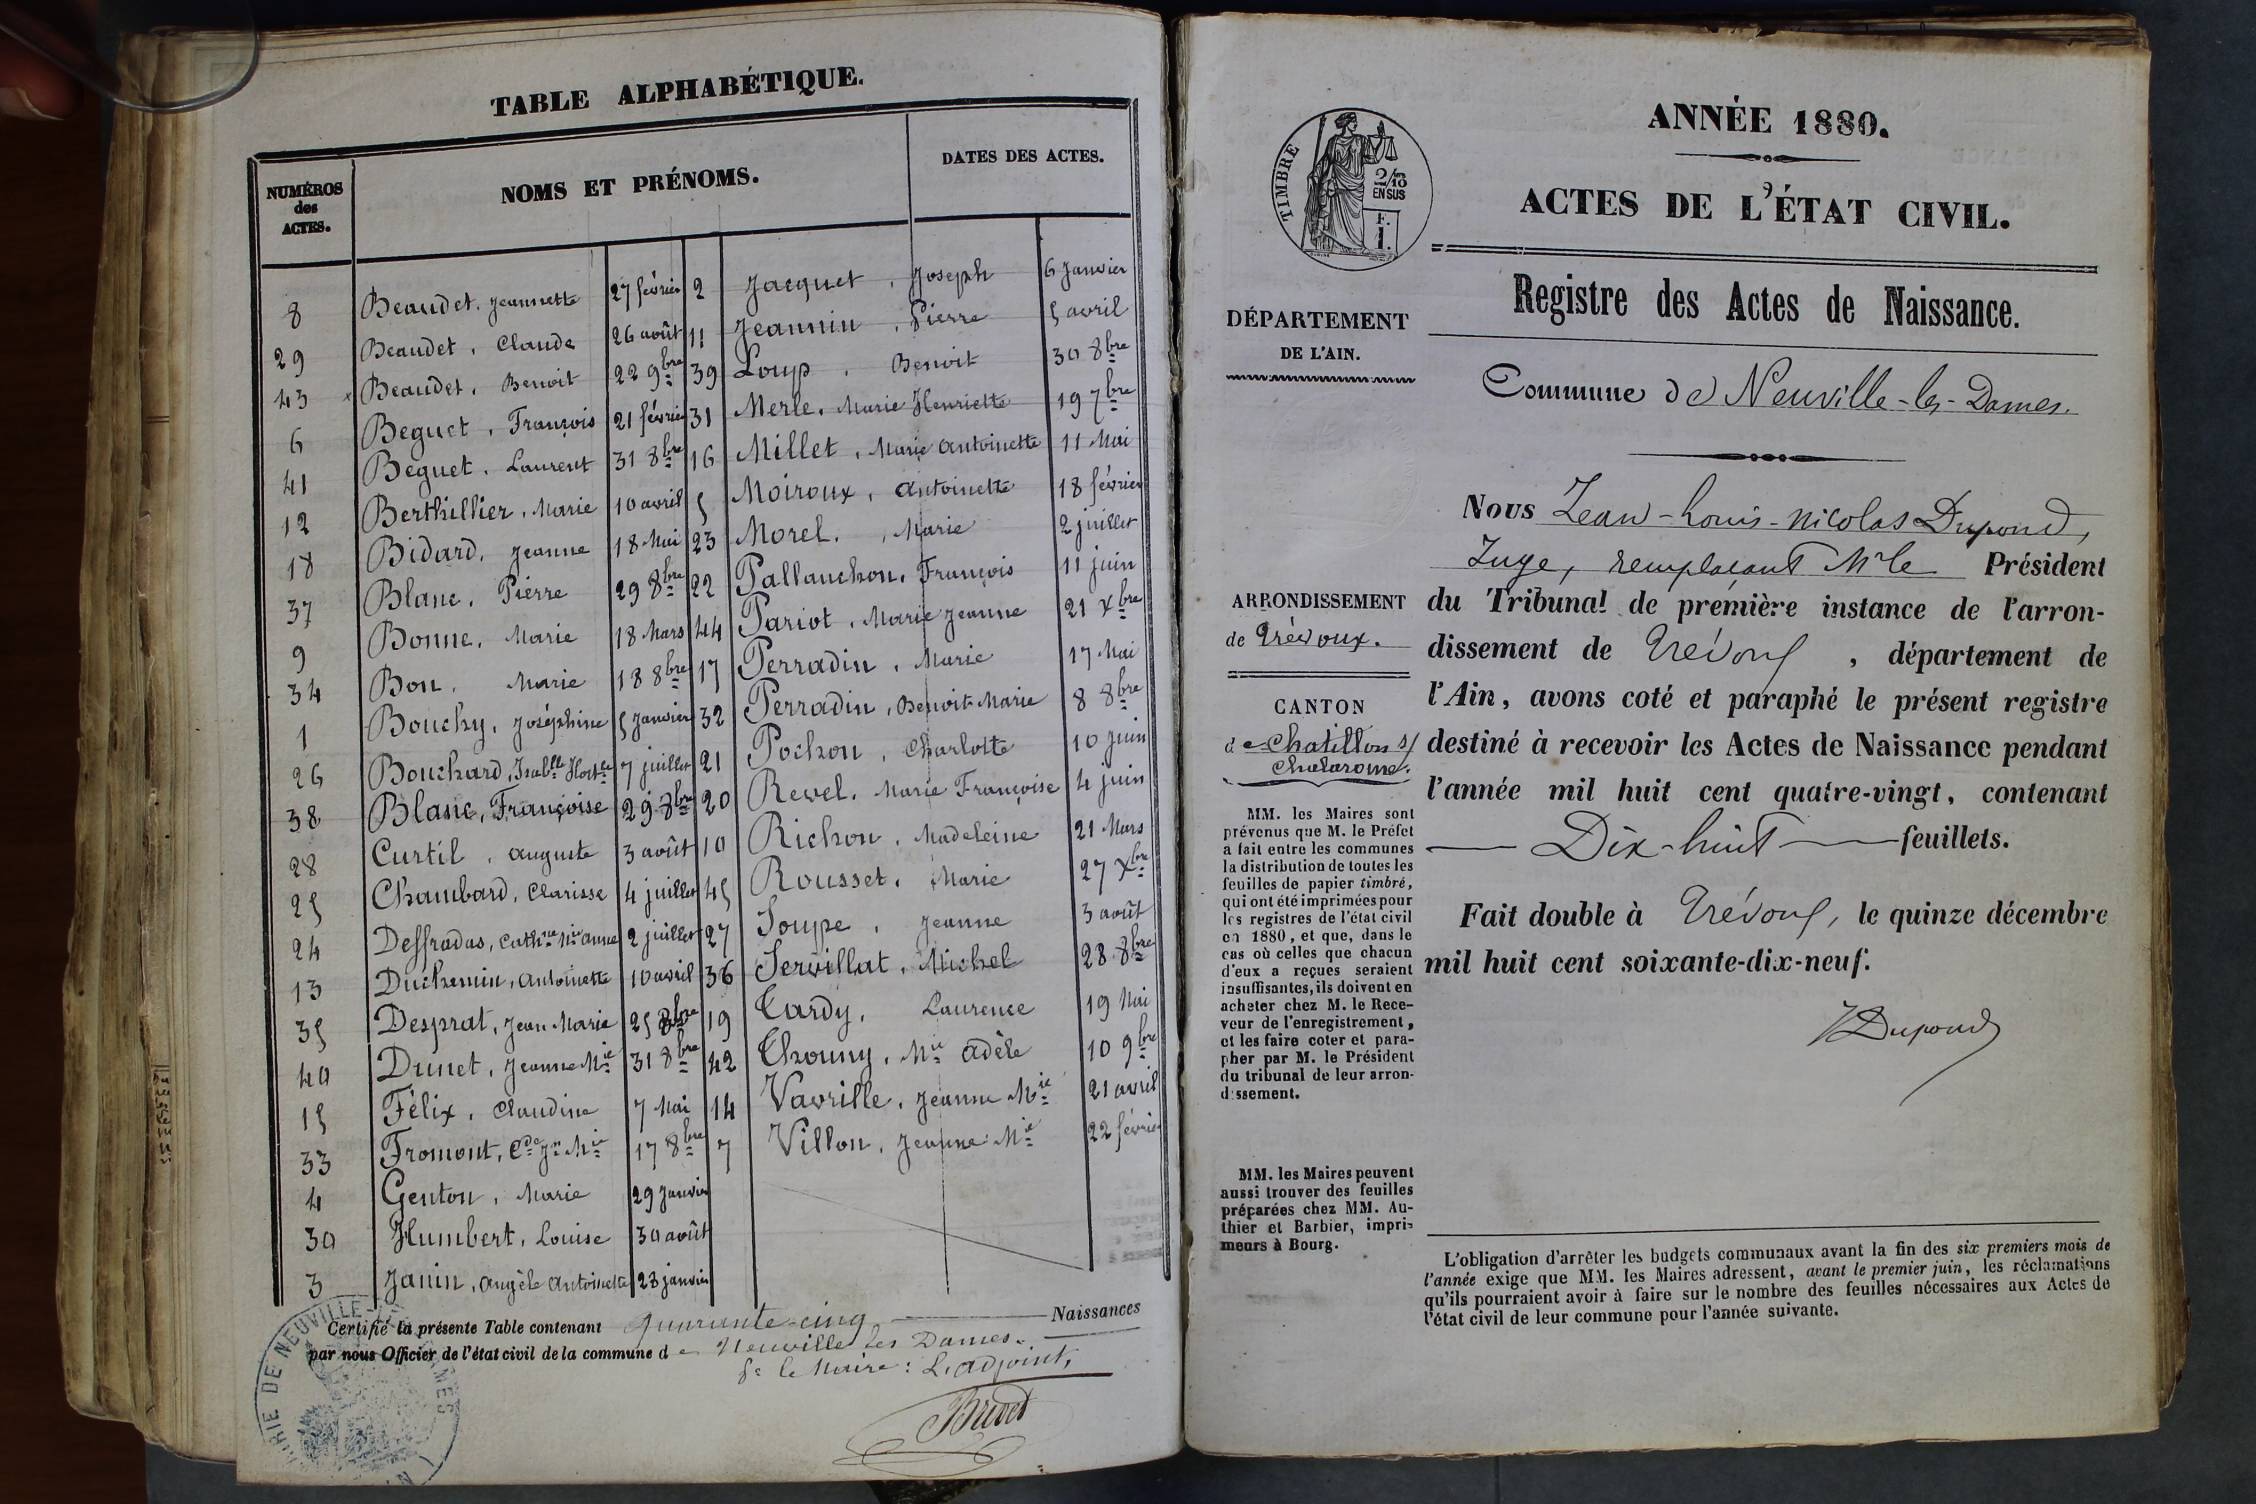 TABLE ALPHABÉTIQUE.
NUMÉROS des ACTES. NOMS ET PRÉNOMS. DATES DES ACTES.
8 Beaudet, Jeannette 27 février 2 Jacquet, Joseph 6 Janvier
29 Beaudet, Claude 26 août 11 Jeannin, Pierre 5 avril
43 Beaudet, Benoit 22 9bre 39 Loup, Benoit 30 8bre
6 Beguet, François 21 février 31 Merle, Marie Henriette 19 7bre
41 Beguet, Laurent 31 8bre 16 Millet, Marie Antoinette 11 Mai
12 Berthillier, Marie 10 avril 5 Moiroux, Antoinette 18 février
18 Bidard, Jeanne 18 Mai 23 Morel, Marie 2 juillet
37 Blanc, Pierre 29 8bre 22 Pallanchon, François 11 juin
9 Bonne, Marie 18 Mars 44 Pariot, Marie Jeanne 21 Xbre
34 Bon, Marie 18 8bre 17 Perradin, Marie 17 Mai
1 Bouchy, Joséphine 5 Janvier 32 Perradin, Benoit Marie 8 8bre
26 Bouchard, Isablle Hortse 7 juillet 21 Pochon, Charlotte 10 juin
38 Blanc, Françoise 29 8bre 20 Revel, Marie Françoise 4 juin
28 Curtil, Auguste 3 août 10 Richon, Madeleine 21 Mars
25 Chambard, Clarisse 4 juillet 45 Rousset, Marie 27 Xbre
24 Deffradas, Cathne Mie Anne 2 juillet 27 Soupe, Jeanne 3 août
13 Duchemin, Antoinette 10 avril 36 Servillat, Michel 28 8bre
35 Desprat, Jean Marie 25 8bre 19 Tardy, Laurence 19 Mai
40 Drunet, Jeanne Mie 31 8bre 42 Thouny, Mie Adèle 10 9bre
15 Félix, Claudine 7 Mai 14 Vavrille, Jeanne Mie 21 avril
33 Fromont, Cde Jn Mie 17 8bre 7 Villon, Jeanne Mie 22 février
4 Genton, Marie 29 Janvier
30 Humbert, Louise 30 août
3 Janin, Angèle Antoinette 23 janvier
Certifié la présente Table contenant quarante-cinq Naissances
par nous Officier de l'état civil de la commune de Neuville les Dames.
Pr le Maire : L'adjoint,
Bridet
MAIRIE DE NEUVILLE-LES-DAMES
ANNÉE 1880.
ACTES DE L'ÉTAT CIVIL.
TIMBRE
2/10 EN SUS
F. 1.
Registre des Actes de Naissance.
DÉPARTEMENT
DE L'AIN.
Commune de Neuville-les-Dames.
ARRONDISSEMENT
de Trévoux.
CANTON
de Chatillon s/
Chalaronne.
MM. les Maires sont
prévenus que M. le Préfet
a fait entre les communes
la distribution de toutes les
feuilles de papier timbré,
qui ont été imprimées pour
les registres de l'état civil
en 1880, et que, dans le
cas où celles que chacun
d'eux a reçues seraient
insuffisantes, ils doivent en
acheter chez M. le Rece-
veur de l'enregistrement,
et les faire coter et para-
pher par M. le Président
du tribunal de leur arron-
dissement.
MM. les Maires peuvent
aussi trouver des feuilles
préparées chez MM. Au-
thier et Barbier, impri-
meurs à Bourg.
Nous Jean-Louis-Nicolas Dupond,
Juge, remplaçant Mr le Président
du Tribunal de première instance de l'arron-
dissement de Trévoux, département de
l'Ain, avons coté et paraphé le présent registre
destiné à recevoir les Actes de Naissance pendant
l'année mil huit cent quatre-vingt, contenant
Dix-huit feuillets.
Fait double à Trévoux, le quinze décembre
mil huit cent soixante-dix-neuf.
JDupond
L'obligation d'arrêter les budgets communaux avant la fin des six premiers mois de
l'année exige que MM. les Maires adressent, avant le premier juin, les réclamations
qu'ils pourraient avoir à faire sur le nombre des feuilles nécessaires aux Actes de
l'état civil de leur commune pour l'année suivante.